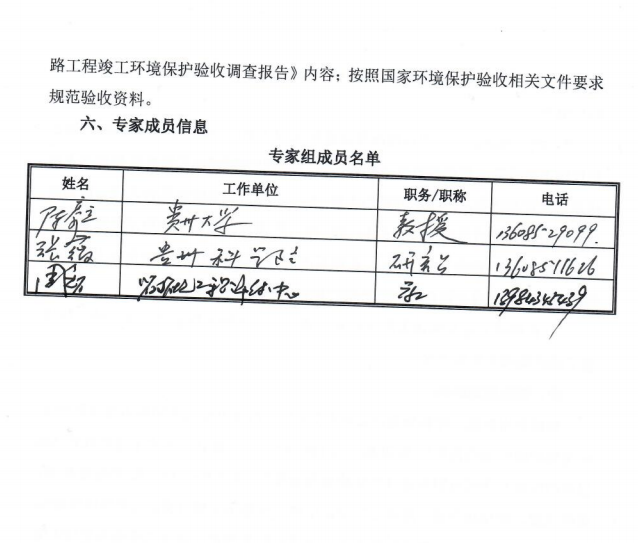 路工程竣工环境保护验收调查报告》内容；按照国家环境保护验收相关文件要求
规范验收资料。
六、专家成员信息
专家组成员名单
姓名 工作单位 职务/职称 电话
贵州大学 教授
张 贵州科学院 研究员 13608511626
中心